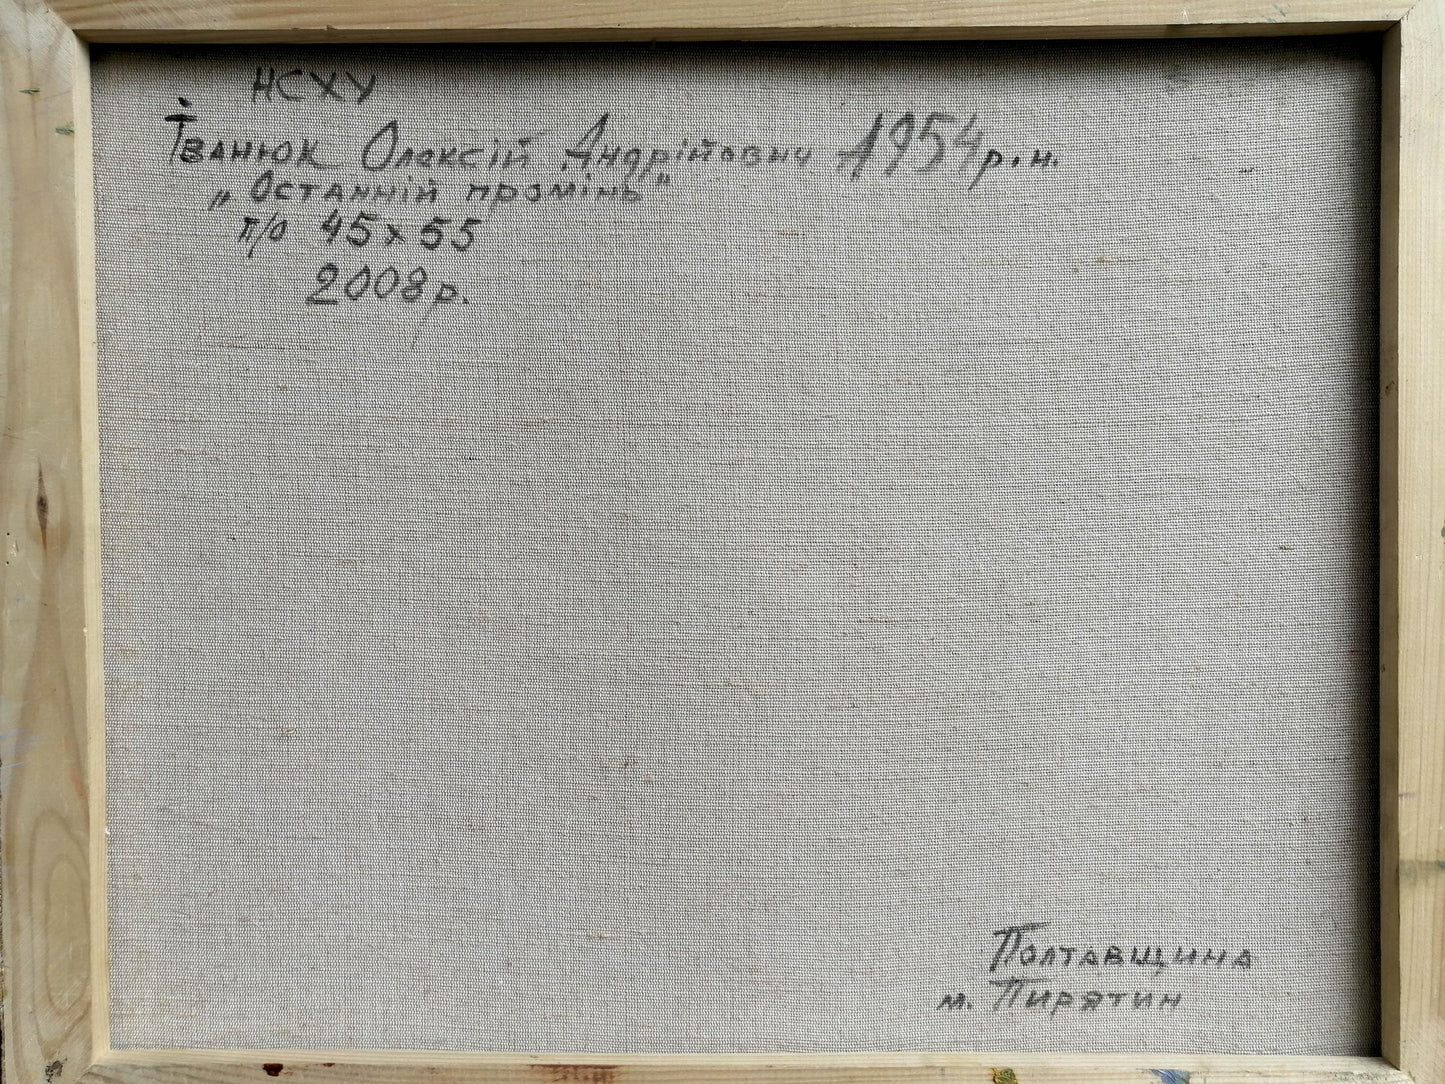 НСХУ
Іванюк Олексій Андрійович 1954 р.н.
„Останній промінь"
п/о 45х55
2008 р.
Полтавщина
м. Пирятин